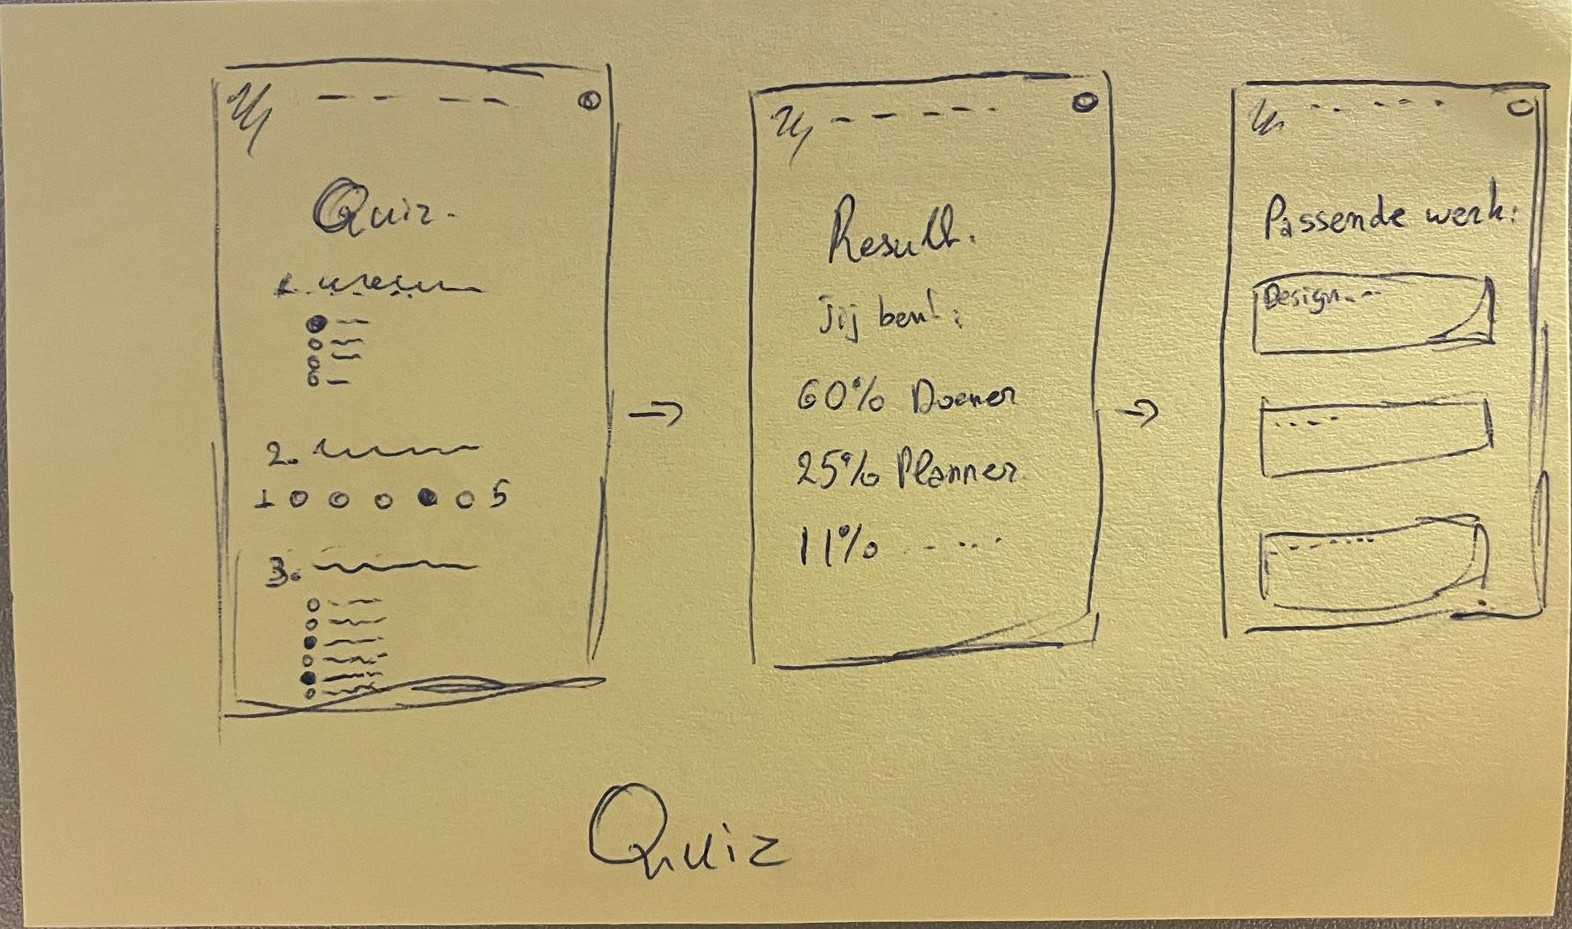 Quiz.
1.
2.
1 5
3.
Result.
Jij bent:
60% Doener
25% Planner
11% - . . .
Passende werk:
Design...
Quiz